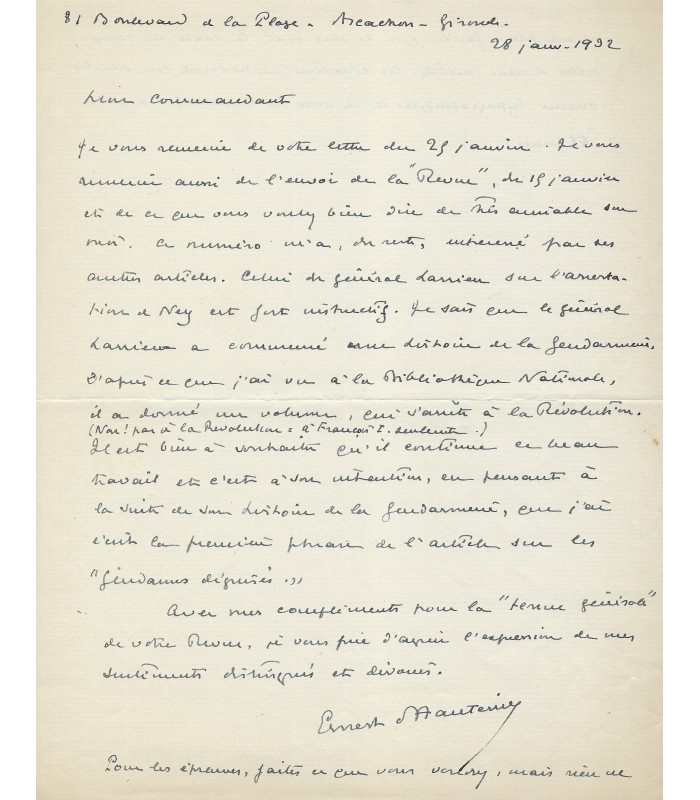 81 Boulevard de la Plage - Arcachon - Gironde.
28 janv. 1932
Mon Commandant
Je vous remercie de votre lettre du 25 janvier. Je vous
remercie aussi de l'envoi de la "Revue", du 15 janvier
et de ce que vous voulez bien dire de très aimable sur
moi. Ce numéro m'a, du reste, intéressé par ses
autres articles. Celui du général Larrieu sur l'arresta-
tion de Ney est fort instructif. Je sais que le général
Larrieu a commencé une histoire de la Gendarmerie.
D'après ce que j'ai vu à la Bibliothèque Nationale,
il a donné un volume, qui s'arrête à la Révolution.
(Non! pas à la Révolution = à François I. seulement.)
Il est bien à souhaiter qu'il continue ce beau
travail et c'est à son intention, en pensant à
la suite de son histoire de la Gendarmerie, que j'ai
écrit la première phrase de l'article sur les
"Gendarmes déguisés."
Avec mes compliments pour la "tenue générale"
de votre Revue, je vous prie d'agréer l'expression de mes
sentiments distingués et dévoués.
Ernest d'Hauterive
Pour les épreuves, faites ce que vous voudrez, mais rien ne